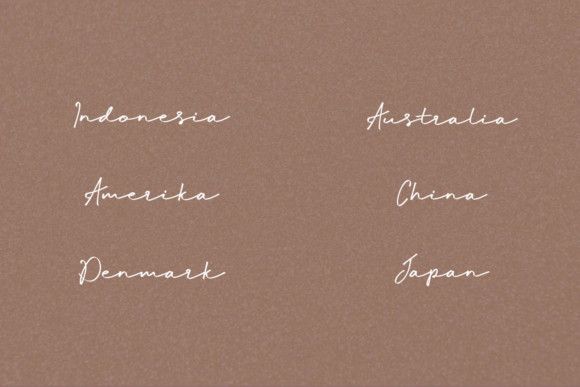 Indonesia
Australia
Amerika
China
Denmark
Japan